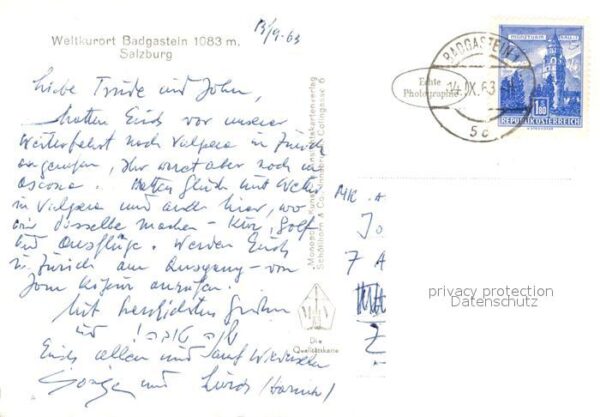 Weltkurort Badgastein 1083 m.
Salzburg
13/9-63
Liebe Trude und John,
hatten Euch vor unserer
Weiterfahrt nach Vulpera in Zürich
angerufen, Ihr wart aber noch in
Ascona. Hatten Glück mit Wetter
in Vulpera und auch hier, wo
wir dasselbe machen - Kur, Golf
und Ausflüge. Werden Euch
in Zürich am Ausgang - von
Jom Kipur anrufen.
Mit herzlichsten Grüßen
und שנה טובה!
Euch allen und auf Wiedersehen
und
Echte
Photographie
BADGASTEIN 1
14.IX.63
5c
MÜNZTURM HALL
S 1.80
REPUBLIK ÖSTERREICH
Schöllhorn & Co.
Die
Qualitätskarte
Jo
7 A
Z
privacy protection
Datenschutz